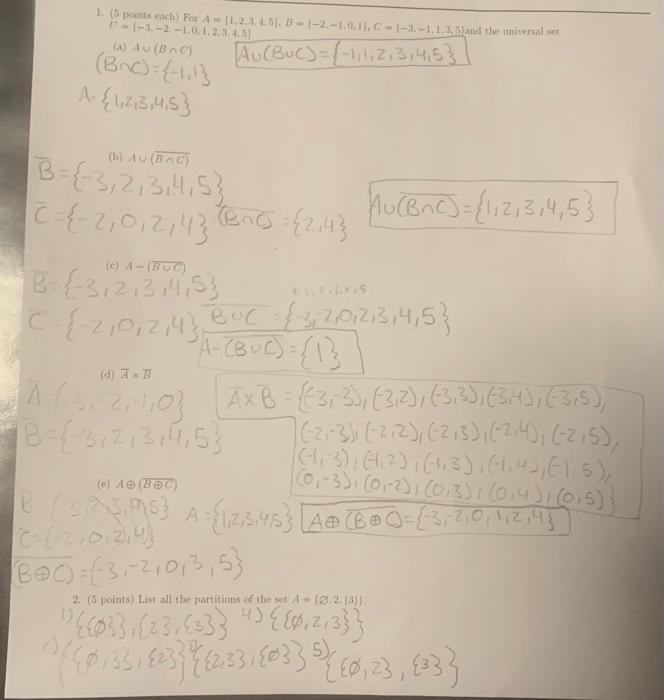 1. (5 points each) For A = {1, 2, 3, 4, 5}, B = {-2, -1, 0, 1}, C = {-3, -1, 1, 3, 5}and the universal set
U = {-3, -2, -1, 0, 1, 2, 3, 4, 5}
(a) A ∪ (B ∩ C)
A∪(B∪C)={-1,1,2,3,4,5}
(B∩C)={-1,1}
A={1,2,3,4,5}
(b) A ∪ (\overline{B ∩ C})
\overline{B}={-3,2,3,4,5}
\overline{C}={-2,0,2,4} (\overline{B∩C})={2,4}
A∪(\overline{B∩C})={1,2,3,4,5}
(c) A − (\overline{B ∪ C})
\overline{B}={-3,2,3,4,5}
\overline{C}={-2,0,2,4} \overline{B∪C}={-3,-2,0,2,3,4,5}
A-(\overline{B∪C})={1}
(d) \overline{A} × \overline{B}
\overline{A}={-3,-2,-1,0}
\overline{B}={-3,2,3,4,5}
\overline{A}×\overline{B}={(-3,-3),(-3,2),(-3,3),(-3,4),(-3,5),
(-2,-3),(-2,2),(-2,3),(-2,4),(-2,5),
(-1,-3),(-1,2),(-1,3),(-1,4),(-1,5),
(0,-3),(0,-2),(0,3),(0,4),(0,5)}
(e) A ⊕ (\overline{B ⊕ C})
B {-3,2,3,4,5} A={1,2,3,4,5} A⊕(\overline{B⊕C})={-3,-2,0,1,2,4}
\overline{C}={-2,0,2,4}
(\overline{B⊕C})={-3,-2,0,3,5}
2. (5 points) List all the partitions of the set A = {∅, 2, {3}}.
1) {{∅}},{2},{3}} 4) {{∅,2,3}}
2) {{∅,3},{2}} 3) {{2,3},{∅}} 5) {{∅,2},{3}}